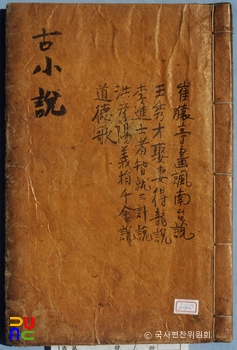 古小說
崔猿亭畫諷南台說
王秀才娶妻得龍說
李進士計說
洪彦陽義捐千金說
道德歌
© 국사편찬위원회